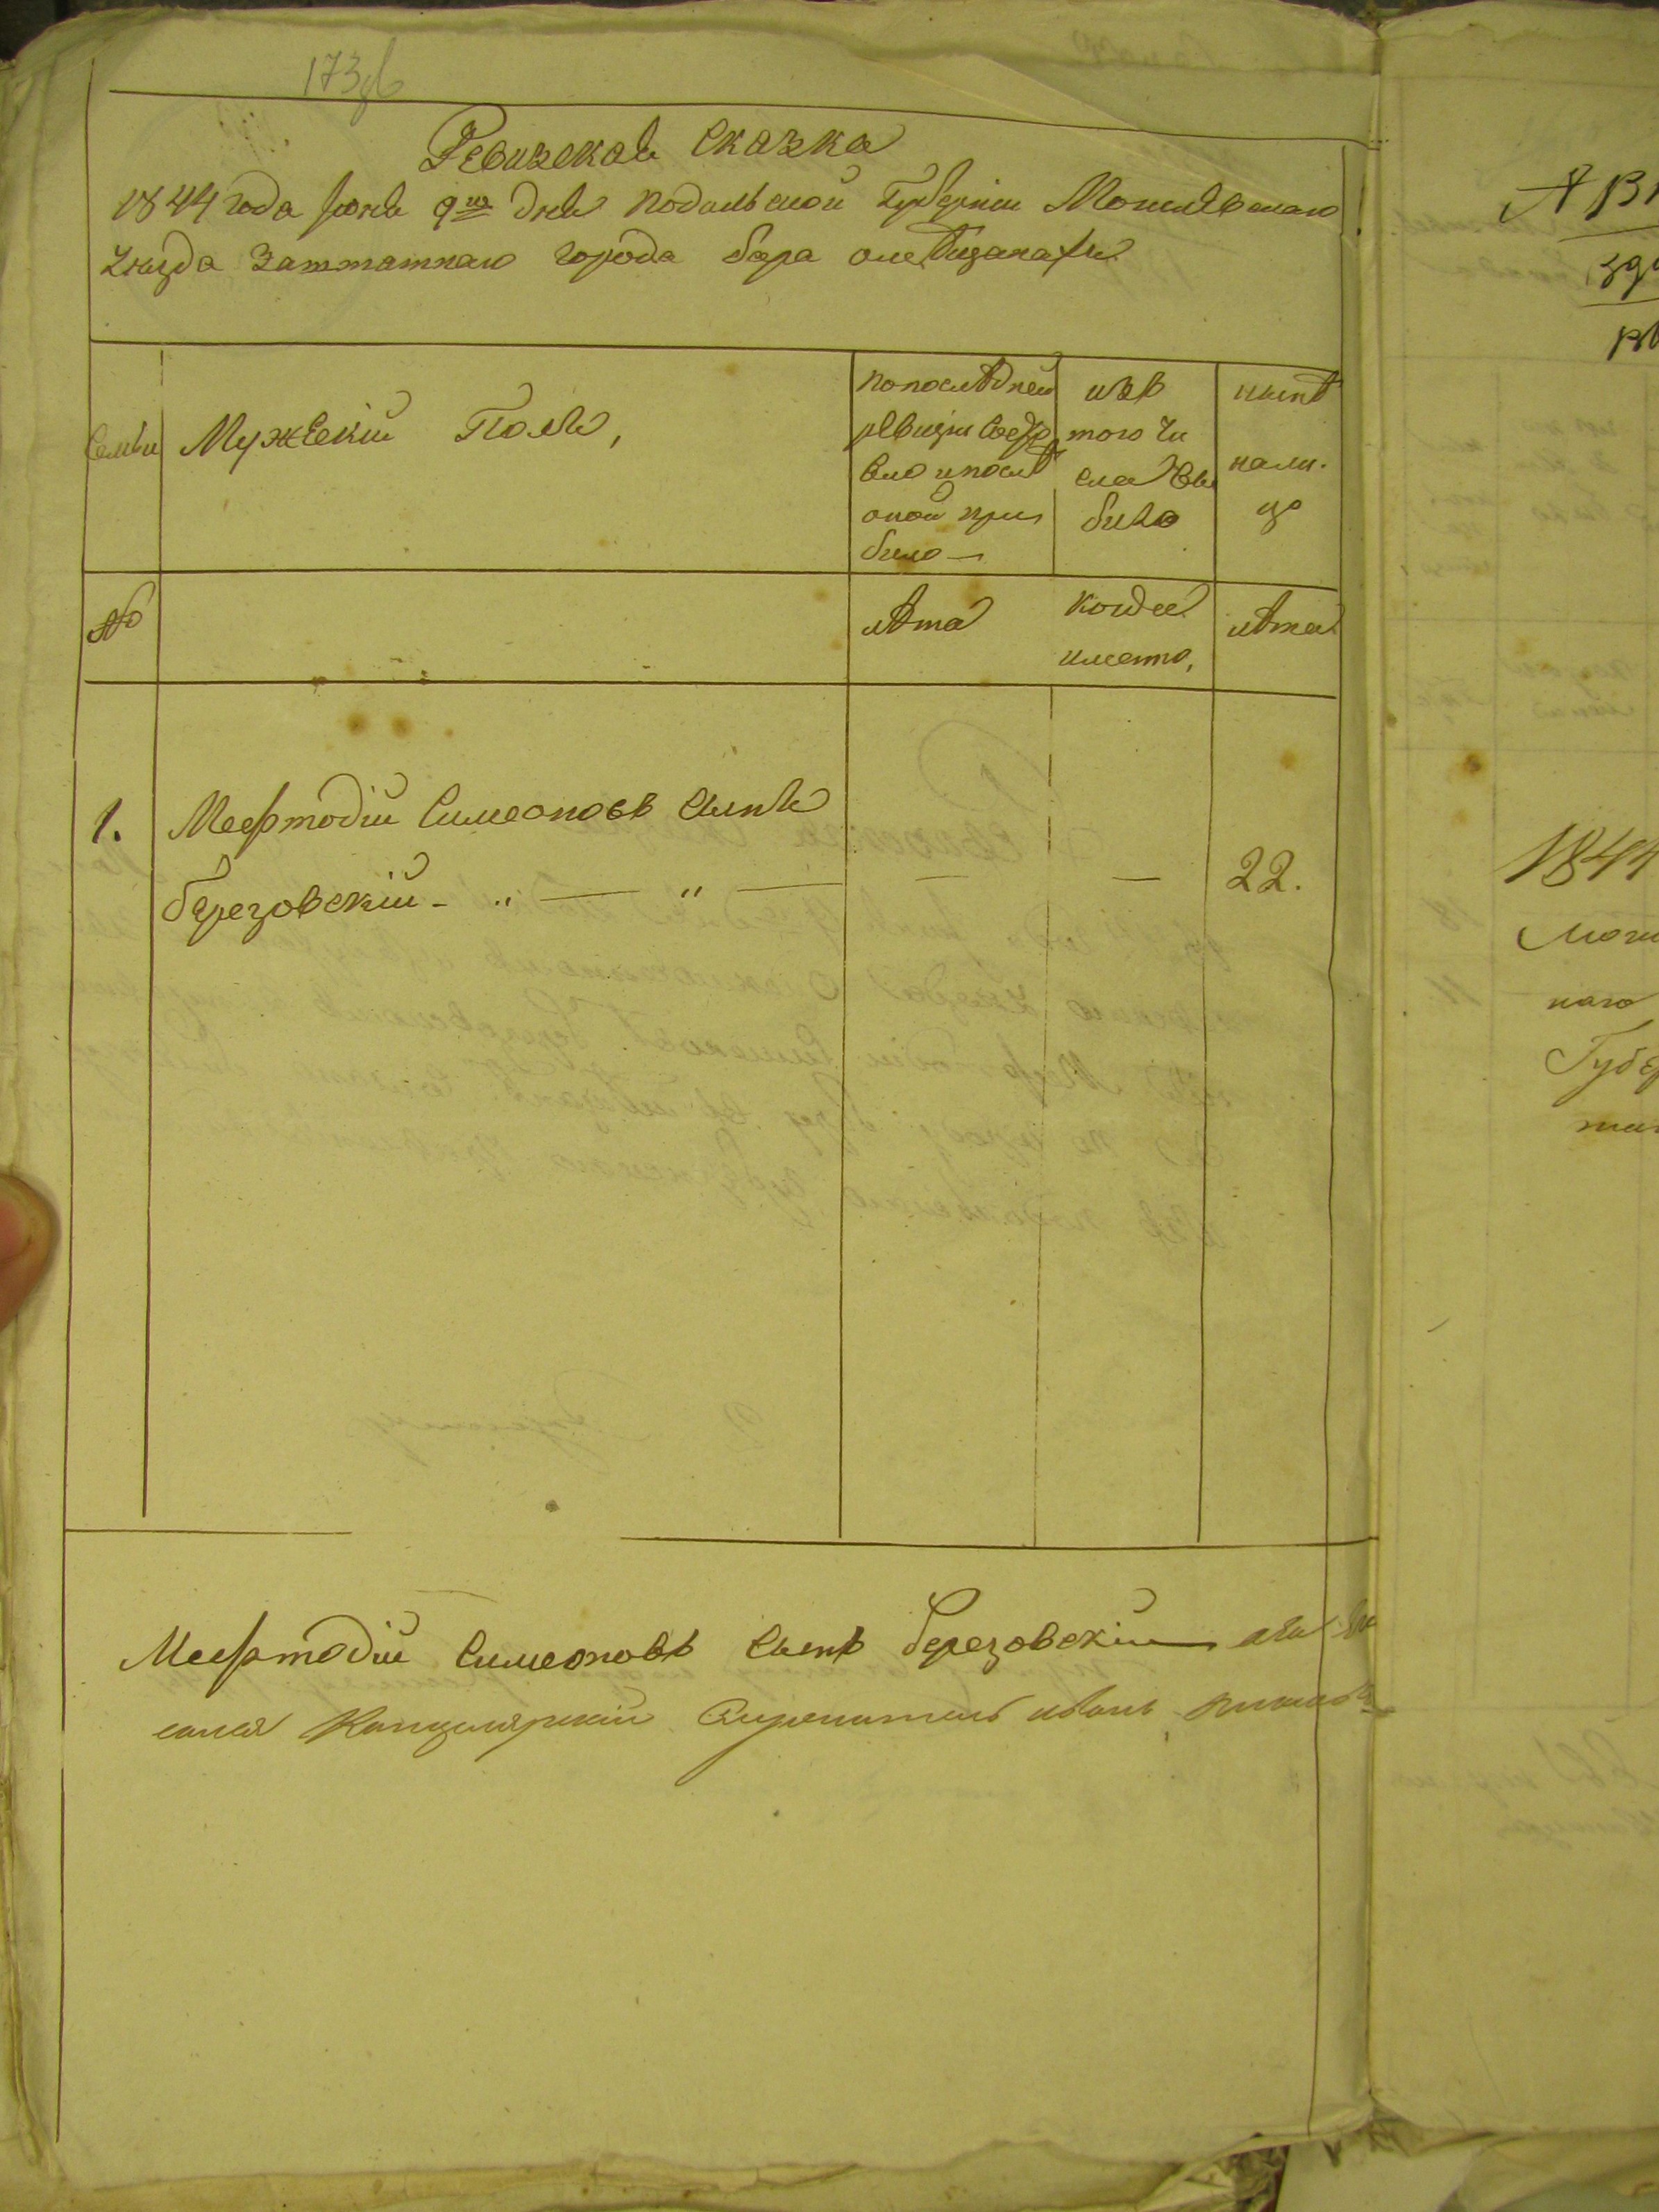 173
Ревизская Сказка
1844 года Июня 9го дня Подольской Губерніи Могилевскаго
Уезда Заштатнаго города бара о мещанахъ
Семьи
Мужескій Полъ,
по последней
ревизіи состо
яло и после
оной при
было —
изъ
того чи
сла вы
было
ныне
на ли
цо
№
лета
когда
именно,
лета
1.
Мефтодій Симеоновъ сынъ
березовскій - „ — „ — — — 22.
Мефтодій Симеоновъ Сынъ Березовскій а за
Канцелярскій Служитель Иванъ
1844
наго
Губер